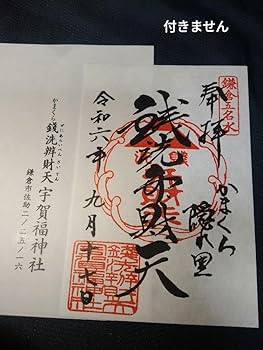 付きません
鎌倉五名水
奉拝
かまくら
隠れ里
銭洗弁財天
令和六年九月十七日
かまくら
ぜにあらいべんざいてん
銭洗辨財天 宇賀福神社
鎌倉市佐助二ノ二五ノ一六